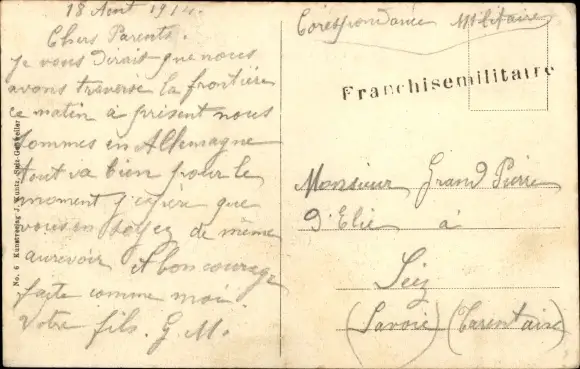 18 Aout 1914.
Chers Parents.
Je vous dirait que nous
avons traversé la frontière
ce matin a présent nous
sommes en Allemagne
tout va bien pour le
moment j'espère que
vous en soyez de même
aurevoir et bon courage
faite comme moi.
Votre fils. G. M.
No. 6 Kunstverlag J. Kuntz, Sulz-Gebweiler
Corespondance Militaire
Franchisemilitaire
Monsieur Grand Pierre
d'Elie à
Séez
(Savoie) (Tarentaise)